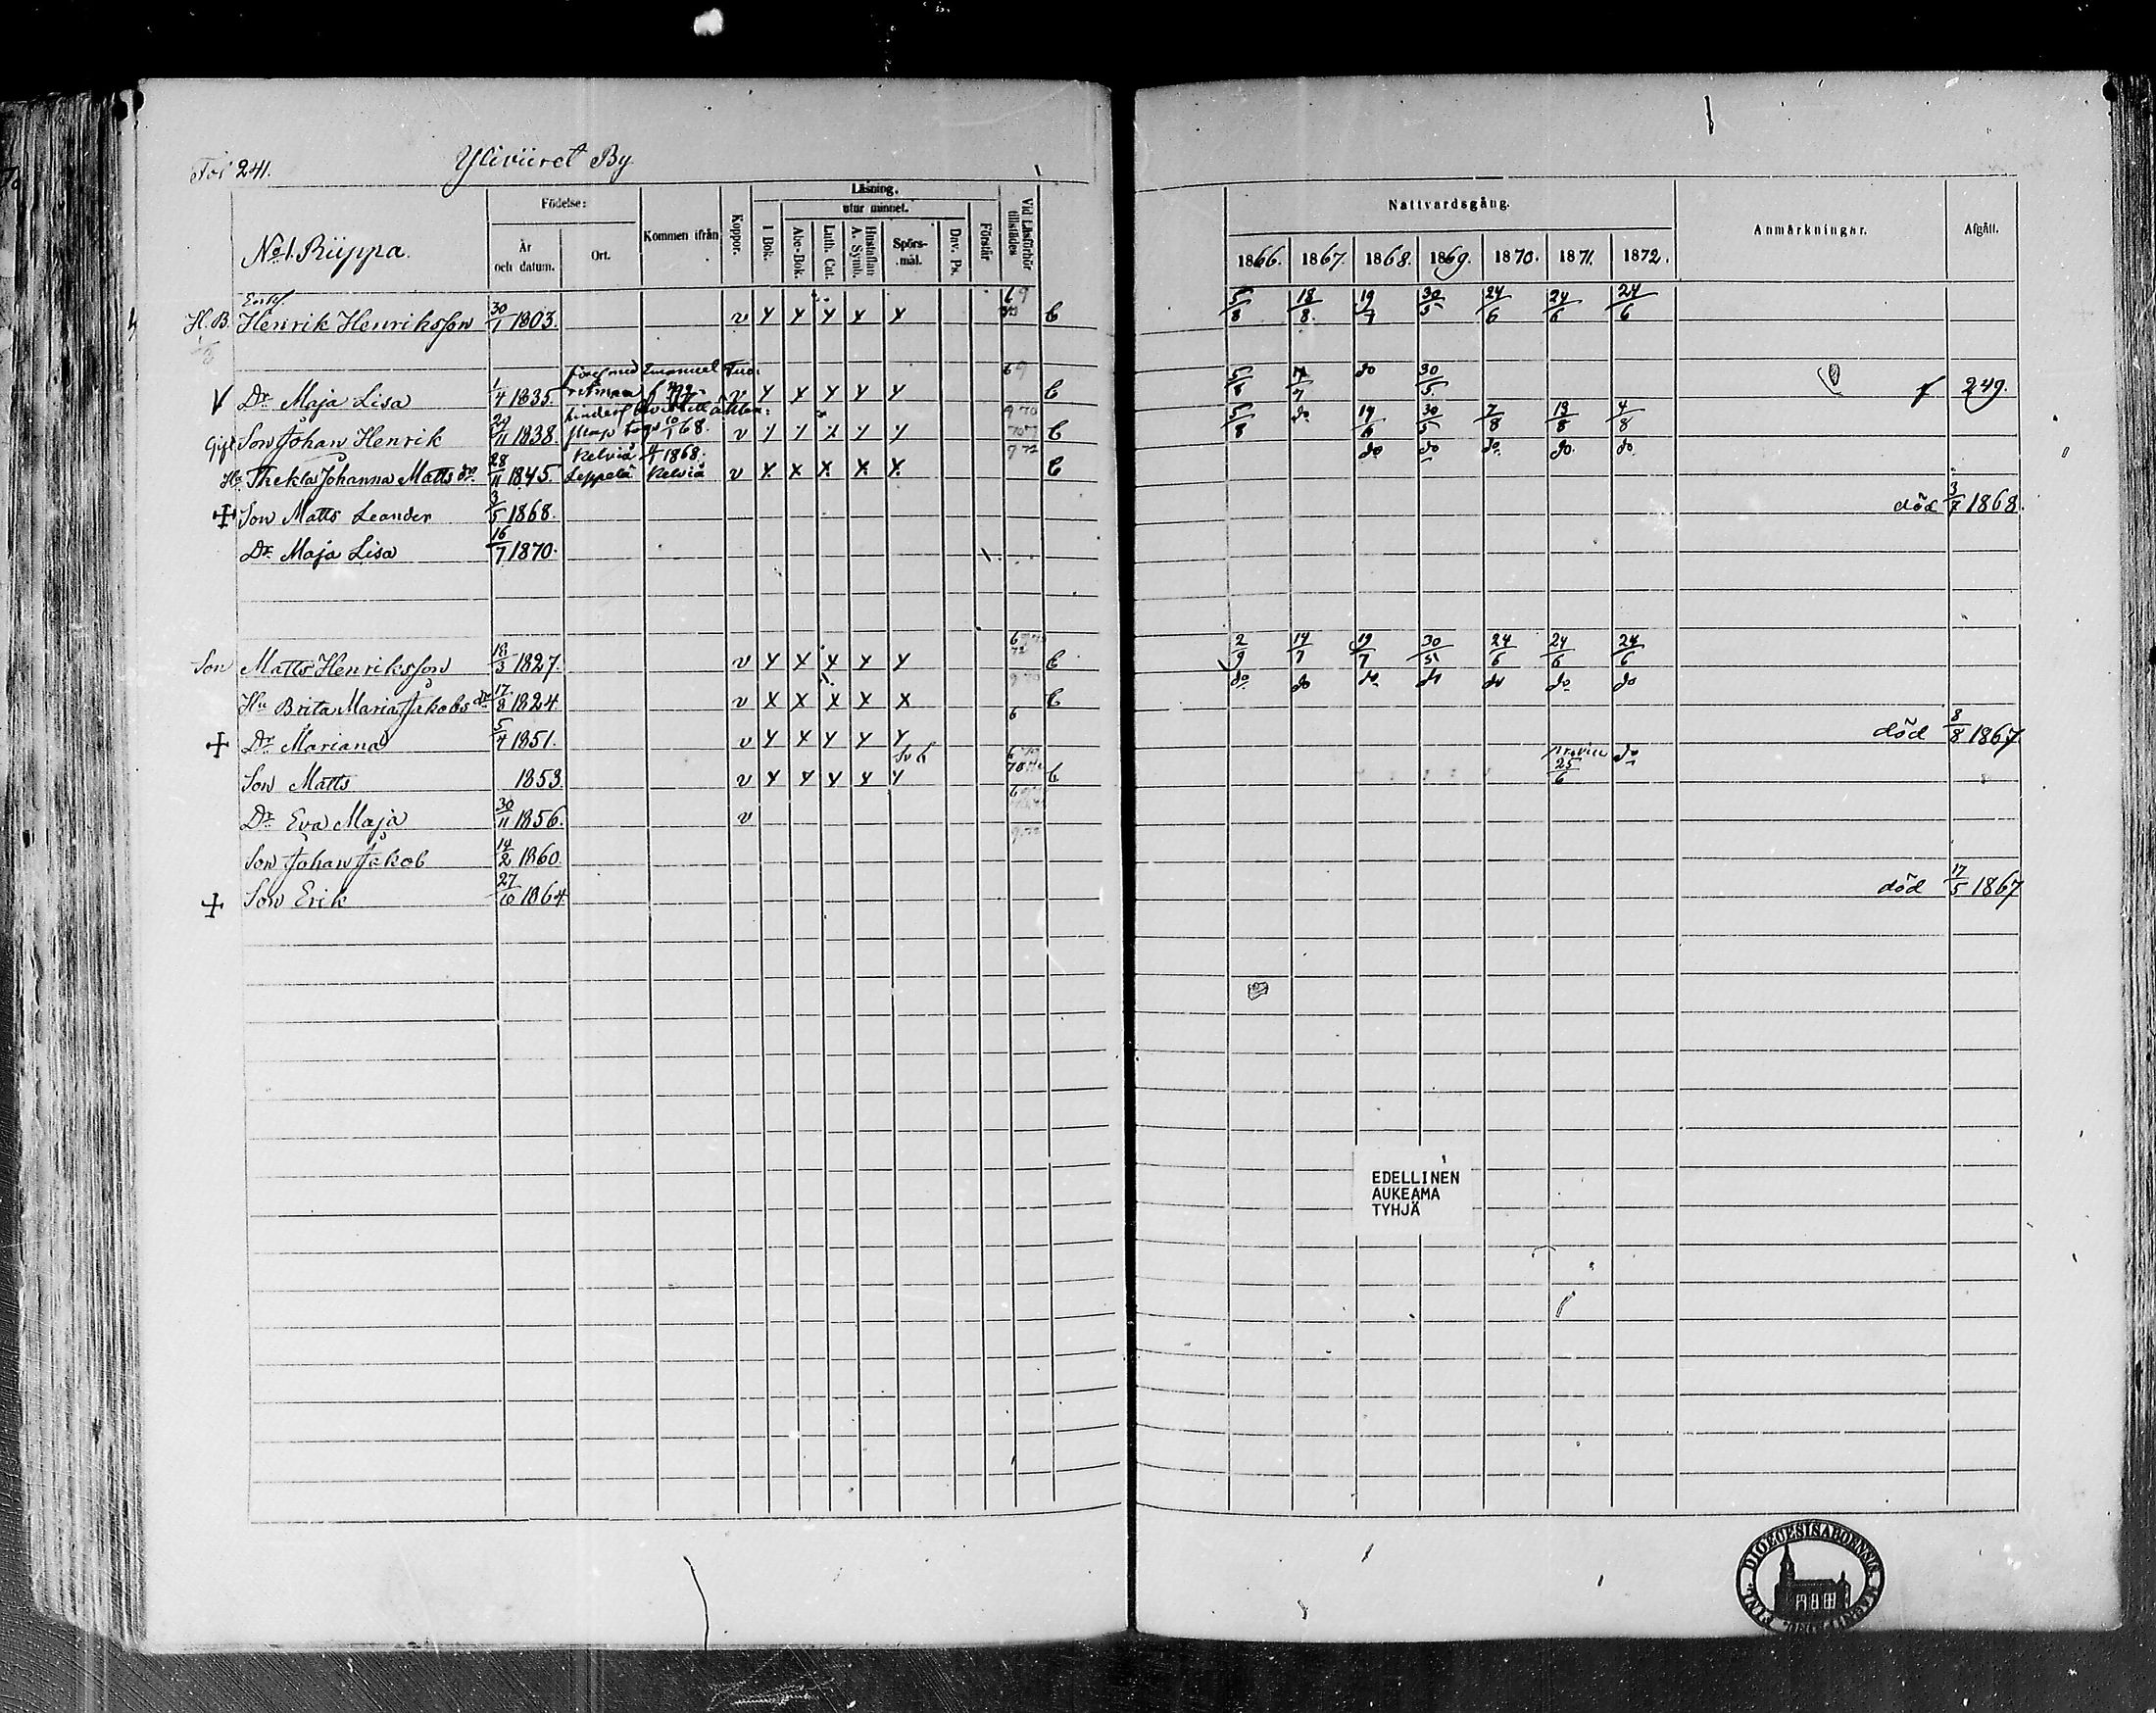 Fol 241. Yliviiret By
No 1. Riippa.
Födelse:
År och datum.
Ort.
Kommen ifrån
Koppor.
Läsning.
utur minnet.
I Bok.
Abc-Bok.
Luth. Cat.
Hustaflan A. Symb.
Spörsmål.
Dav. Ps.
Förstår
Vid Läsförhör tillstädes
Nattvardsgång.
1866. 1867. 1868. 1869. 1870. 1871. 1872.
Anmärkningar.
Afgått.
Enkl
H. B. Henrik Henriksson 30/1 1803. v Y Y Y Y Y b 5/8 18/8 19/7 30/5 24/6 24/6 24/6
Emanuel
Dr Maja Lisa 1/4 1835. v Y Y Y Y Y b 5/8 7/7 do 30/5 f 249.
Gift Son Johan Henrik 29/11 1838. 10/1 68. v Y Y Y Y Y b 5/8 do 19/6 30/5 7/8 13/8 4/8
Kelviå 4/1 1868.
Hu Thekla Johanna Matts dr 28/11 1845. Leppelä Kelviå v X X X X X b do do do do do
+ Son Matts Leander 3/5 1868. död 3/7 1868.
Dr Maja Lisa 16/7 1870.
Son Matts Henriksson 18/3 1827. v Y X Y X Y b 2/9 14/7 19/7 30/5 24/6 24/6 24/6
Hu Brita Maria Jakobs dr 17/8 1824 v X X X X X b do do do do do do do
+ Dr Mariana 5/4 1851. v Y Y Y Y Y död 8/8 1867
Son Matts 1853. v Y Y Y Y Y b 25/6 do
Dr Eva Maja 30/11 1856. v
Son Johan Jakob 14/2 1860
+ Son Erik 27/10 1864 död 17/5 1867
EDELLINEN
AUKEAMA
TYHJÄ